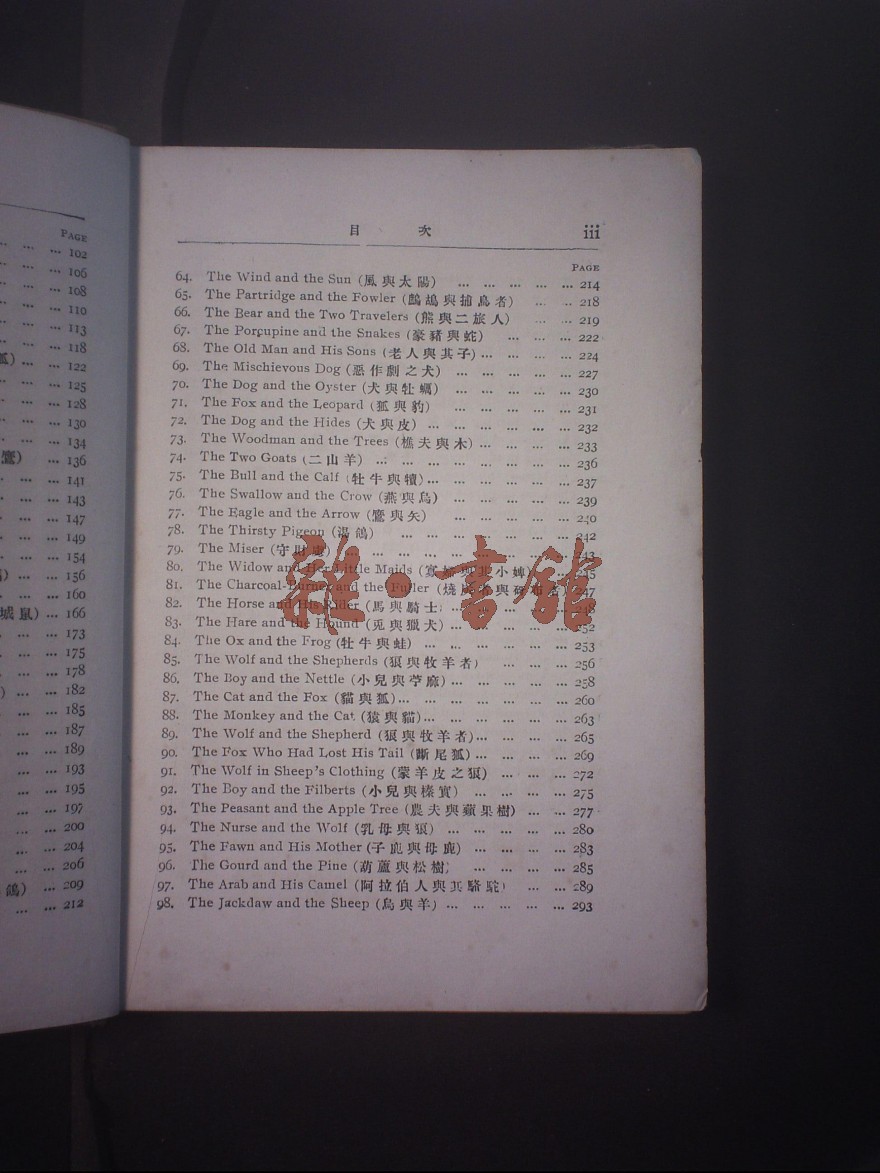 PAGE
... ... ... 102
... ... 106
... ... ... 108
... ... 110
... ... ... 113
... ... ... 118
狐) ... ... 122
... ... 125
... ... ... 128
... ... ... 130
... ... ... 134
鷹) ... 136
... ... ... 141
... ... ... 143
... ... ... 147
... ... ... 149
... ... ... 154
) ... ... 156
... ... ... 160
城鼠) ... 166
... ... ... 173
... ... 175
... ... ... 178
) ... ... 182
... ... 185
... ... 187
... ... 189
... ... 193
... ... 195
... ... 197
... ... 200
... ... 204
... ... 206
鴿) ... 209
... ... 212
目 次 iii
PAGE
64. The Wind and the Sun (風與太陽) ... ... ... ... ... 214
65. The Partridge and the Fowler (鷓鴣與捕鳥者) ... ... 218
66. The Bear and the Two Travelers (熊與二旅人) ... ... 219
67. The Porcupine and the Snakes (豪豬與蛇) ... ... ... 222
68. The Old Man and His Sons (老人與其子) ... ... ... ... 224
69. The Mischievous Dog (惡作劇之犬) ... ... ... ... 227
70. The Dog and the Oyster (犬與牡蠣) ... ... ... ... 230
71. The Fox and the Leopard (狐與豹) ... ... ... ... 231
72. The Dog and the Hides (犬與皮) ... ... ... ... ... 232
73. The Woodman and the Trees (樵夫與木) ... ... ... ... 233
74. The Two Goats (二山羊) ... ... ... ... ... ... 236
75. The Bull and the Calf (牡牛與犢) ... ... ... ... ... 237
76. The Swallow and the Crow (燕與烏) ... ... ... ... 239
77. The Eagle and the Arrow (鷹與矢) ... ... ... ... 240
78. The Thirsty Pigeon (渴鴿) ... ... ... ... ... 242
79. The Miser (守財虜) ... ... ... ... ... ... ... 243
80. The Widow and Her Little Maids (寡婦與其小婢) ... ... 245
81. The Charcoal-Burner and the Fuller (燒炭者與研布者) 247
82. The Horse and His Rider (馬與騎士) ... ... ... ... 248
83. The Hare and the Hound (兎與獵犬) ... ... ... ... 252
84. The Ox and the Frog (牡牛與蛙) ... ... ... ... ... 253
85. The Wolf and the Shepherds (狼與牧羊者) ... ... ... 256
86. The Boy and the Nettle (小兒與苧麻) ... ... ... ... 258
87. The Cat and the Fox (貓與狐) ... ... ... ... ... ... 260
88. The Monkey and the Cat (猿與貓) ... ... ... ... ... 263
89. The Wolf and the Shepherd (狼與牧羊者) ... ... ... ... 265
90. The Fox Who Had Lost His Tail (斷尾狐) ... ... ... ... 269
91. The Wolf in Sheep's Clothing (蒙羊皮之狼) ... ... ... 272
92. The Boy and the Filberts (小兒與榛實) ... ... ... ... 275
93. The Peasant and the Apple Tree (農夫與蘋果樹) ... ... 277
94. The Nurse and the Wolf (乳母與狼) ... ... ... ... ... 280
95. The Fawn and His Mother (子鹿與母鹿) ... ... ... ... 283
96. The Gourd and the Pine (葫蘆與松樹) ... ... ... ... 285
97. The Arab and His Camel (阿拉伯人與其駱駝) ... ... 289
98. The Jackdaw and the Sheep (烏與羊) ... ... ... ... ... 293
雜·書館